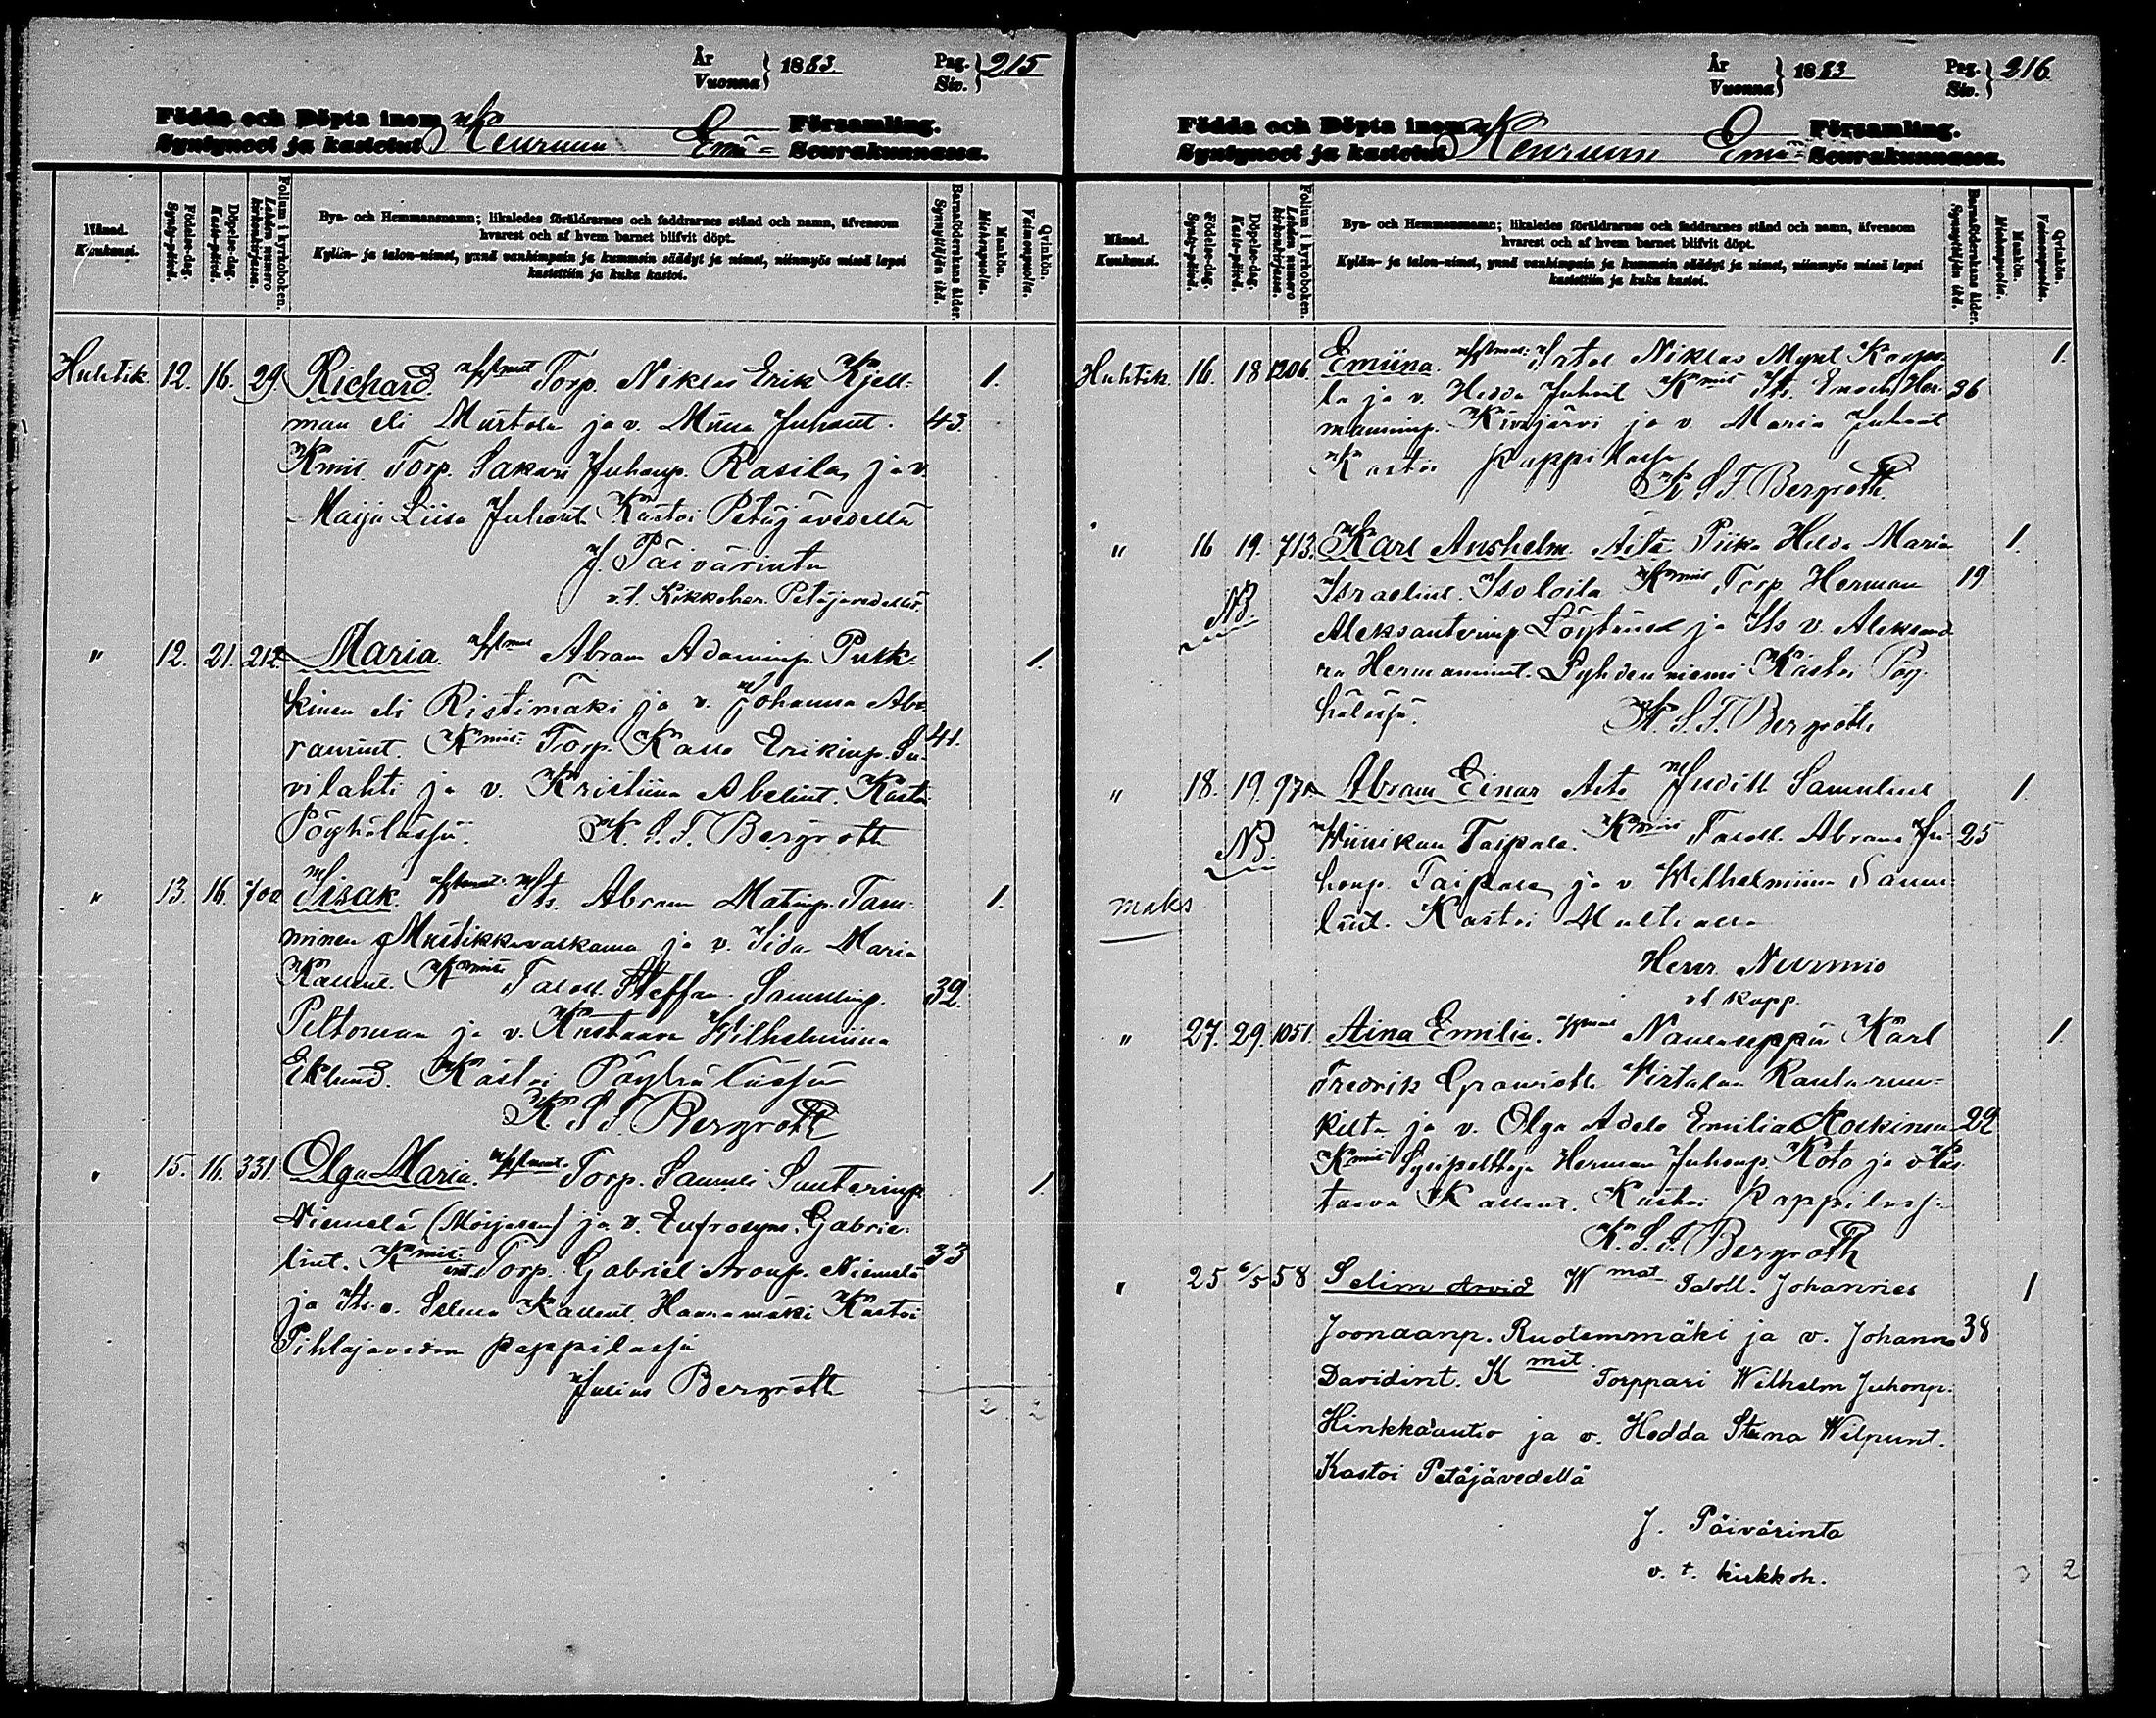 År
Vuonna } 1883. Pag.
Siv. } 215
Födda och Döpta inom Församling.
Syntyneet ja kastetut Keuruun Emä- Seurakunnassa.
Månad.
Kuukausi.
Födelse-dag.
Synty-päivä.
Döpelse-dag.
Kaste-päivä.
Folium i kyrkoboken.
Lehden numero
kirkonkirjassa.
Bya- och Hemmansnamn; likaledes föräldrarnes och faddrarnes stånd och namn, äfvensom
hvarest och af hvem barnet blifvit döpt.
Kylän- ja talon-nimet, ynnä vanhimpain ja kummein säädyt ja nimet, niinmyös missä lapsi
kastettiin ja kuka kastoi.
Barnaföderskans ålder.
Synnyttäjän ikä.
Mankön.
Miehenpuolia.
Qvinkön.
Vaimonpuolia.
Huhtik. 12. 16. 29. Richard. Torp. Niklas Erik Kjell- 1.
man eli Murtola ja v. Miina Juhont. 43.
Kmit Torp. Sakari Juhonp. Rasila, ja v.
Maija Liisa Juhont. Kastoi Petäjävedellä
J. Päivärinta
v.t. Kirkkoher. Petäjävedellä.
" 12. 21. 212. Maria. Abram Adaminp. Pusk- 1.
kinen eli Ristimäki ja v. Johanna Ab-
ramint. Kmit Torp. Kalle Erikinp. Su- 41.
vilahti ja v. Kristiina Abelint. Kastoi
Pöyhölässä. K. S. F. Bergroth
" 13. 16. 700 Iisak. Its. Abram Matinp. Tam- 1.
minen Mustikkavalkama ja v. Iida Maria
Kallent. Kmit Taloll. Steffan Samulinp. 32.
Peltoman ja v. Kustaava Wilhelmiina
Eklund. Kastoi Pöyhölässä
K. S. F. Bergroth
" 15. 16. 331. Olga Maria. Torp. Samuli Santerinp. 1.
Niemelä ja v. Eufrosyne Gabrie-
lint. Kmit Torp. Gabriel Aronp. Niemelä 33
ja Its. v. Selma Kallent. Haaramäki Kastoi
Pihlajaveden pappilassa
Julius Bergroth
2 2
År
Vuonna } 1883 Pag.
Siv. } 216
Födda och Döpta inom Församling.
Syntyneet ja kastetut Keuruun Emä- Seurakunnassa.
Månad.
Kuukausi.
Födelse-dag.
Synty-päivä.
Döpelse-dag.
Kaste-päivä.
Folium i kyrkoboken.
Lehden numero
kirkonkirjassa.
Bya- och Hemmansnamn; likaledes föräldrarnes och faddrarnes stånd och namn, äfvensom
hvarest och af hvem barnet blifvit döpt.
Kylän- ja talon-nimet, ynnä vanhimpain ja kummein säädyt ja nimet, niinmyös missä lapsi
kastettiin ja kuka kastoi.
Barnaföderskans ålder.
Synnyttäjän ikä.
Mankön.
Miehenpuolia.
Qvinkön.
Vaimonpuolia.
Huhtik. 16. 18 1206. Emiina. Niklas 1.
la ja v. Hedda Juhont Kmit Its. Enoch Her- 36
manninp. Kivijärvi ja v. Maria Juhont
Kastoi Pappilassa
K. S. F. Bergroth
" 16 19. 713. Karl Anshelm. Äiti Piika Hilda Maria 1.
Israelint. Isoloila Kmit Torp Herman 19
NB
Aleksanterinp. Löytäned ja Its v. Aleksand-
ra Hermannint. Lyhdenniemi Kastoi Pöy-
hölässä. K. S. F. Bergroth
" 18. 19. 971. Abram Einar Äiti Judith Samulint 1.
NB.
Wiinikan Taipale. Kmit Taloll. Abram Ju- 25
honp. Taipale, ja v. Wilhelmiina Samu-
maks
lint. Kastoi Multialla
Herr Nurmio
v t kapp.
" 27. 29. 1051. Aina Emilia. Naulaseppä Karl 1.
Fredrik Granroth Virtalan Rantaruu-
kilta ja v. Olga Adele Emilia Koskinen 22
Kmit Herman Juhonp. Koto ja v Kus-
taava Kallent. Kastoi Pappilassa
K. S. F. Bergroth
" 25 6/5 58 Selim Arvid Wmat Taloll. Johannes 1
Joonaanp. Ruotemmäki ja v. Johanna 38
Davidint. Kmit Torppari Wilhelm Juhonp.
Hinkkaautio ja v. Hedda Stina Wilpunt.
Kastoi Petäjävedellä
J. Päivärinta
v. t. kirkkoh.
2